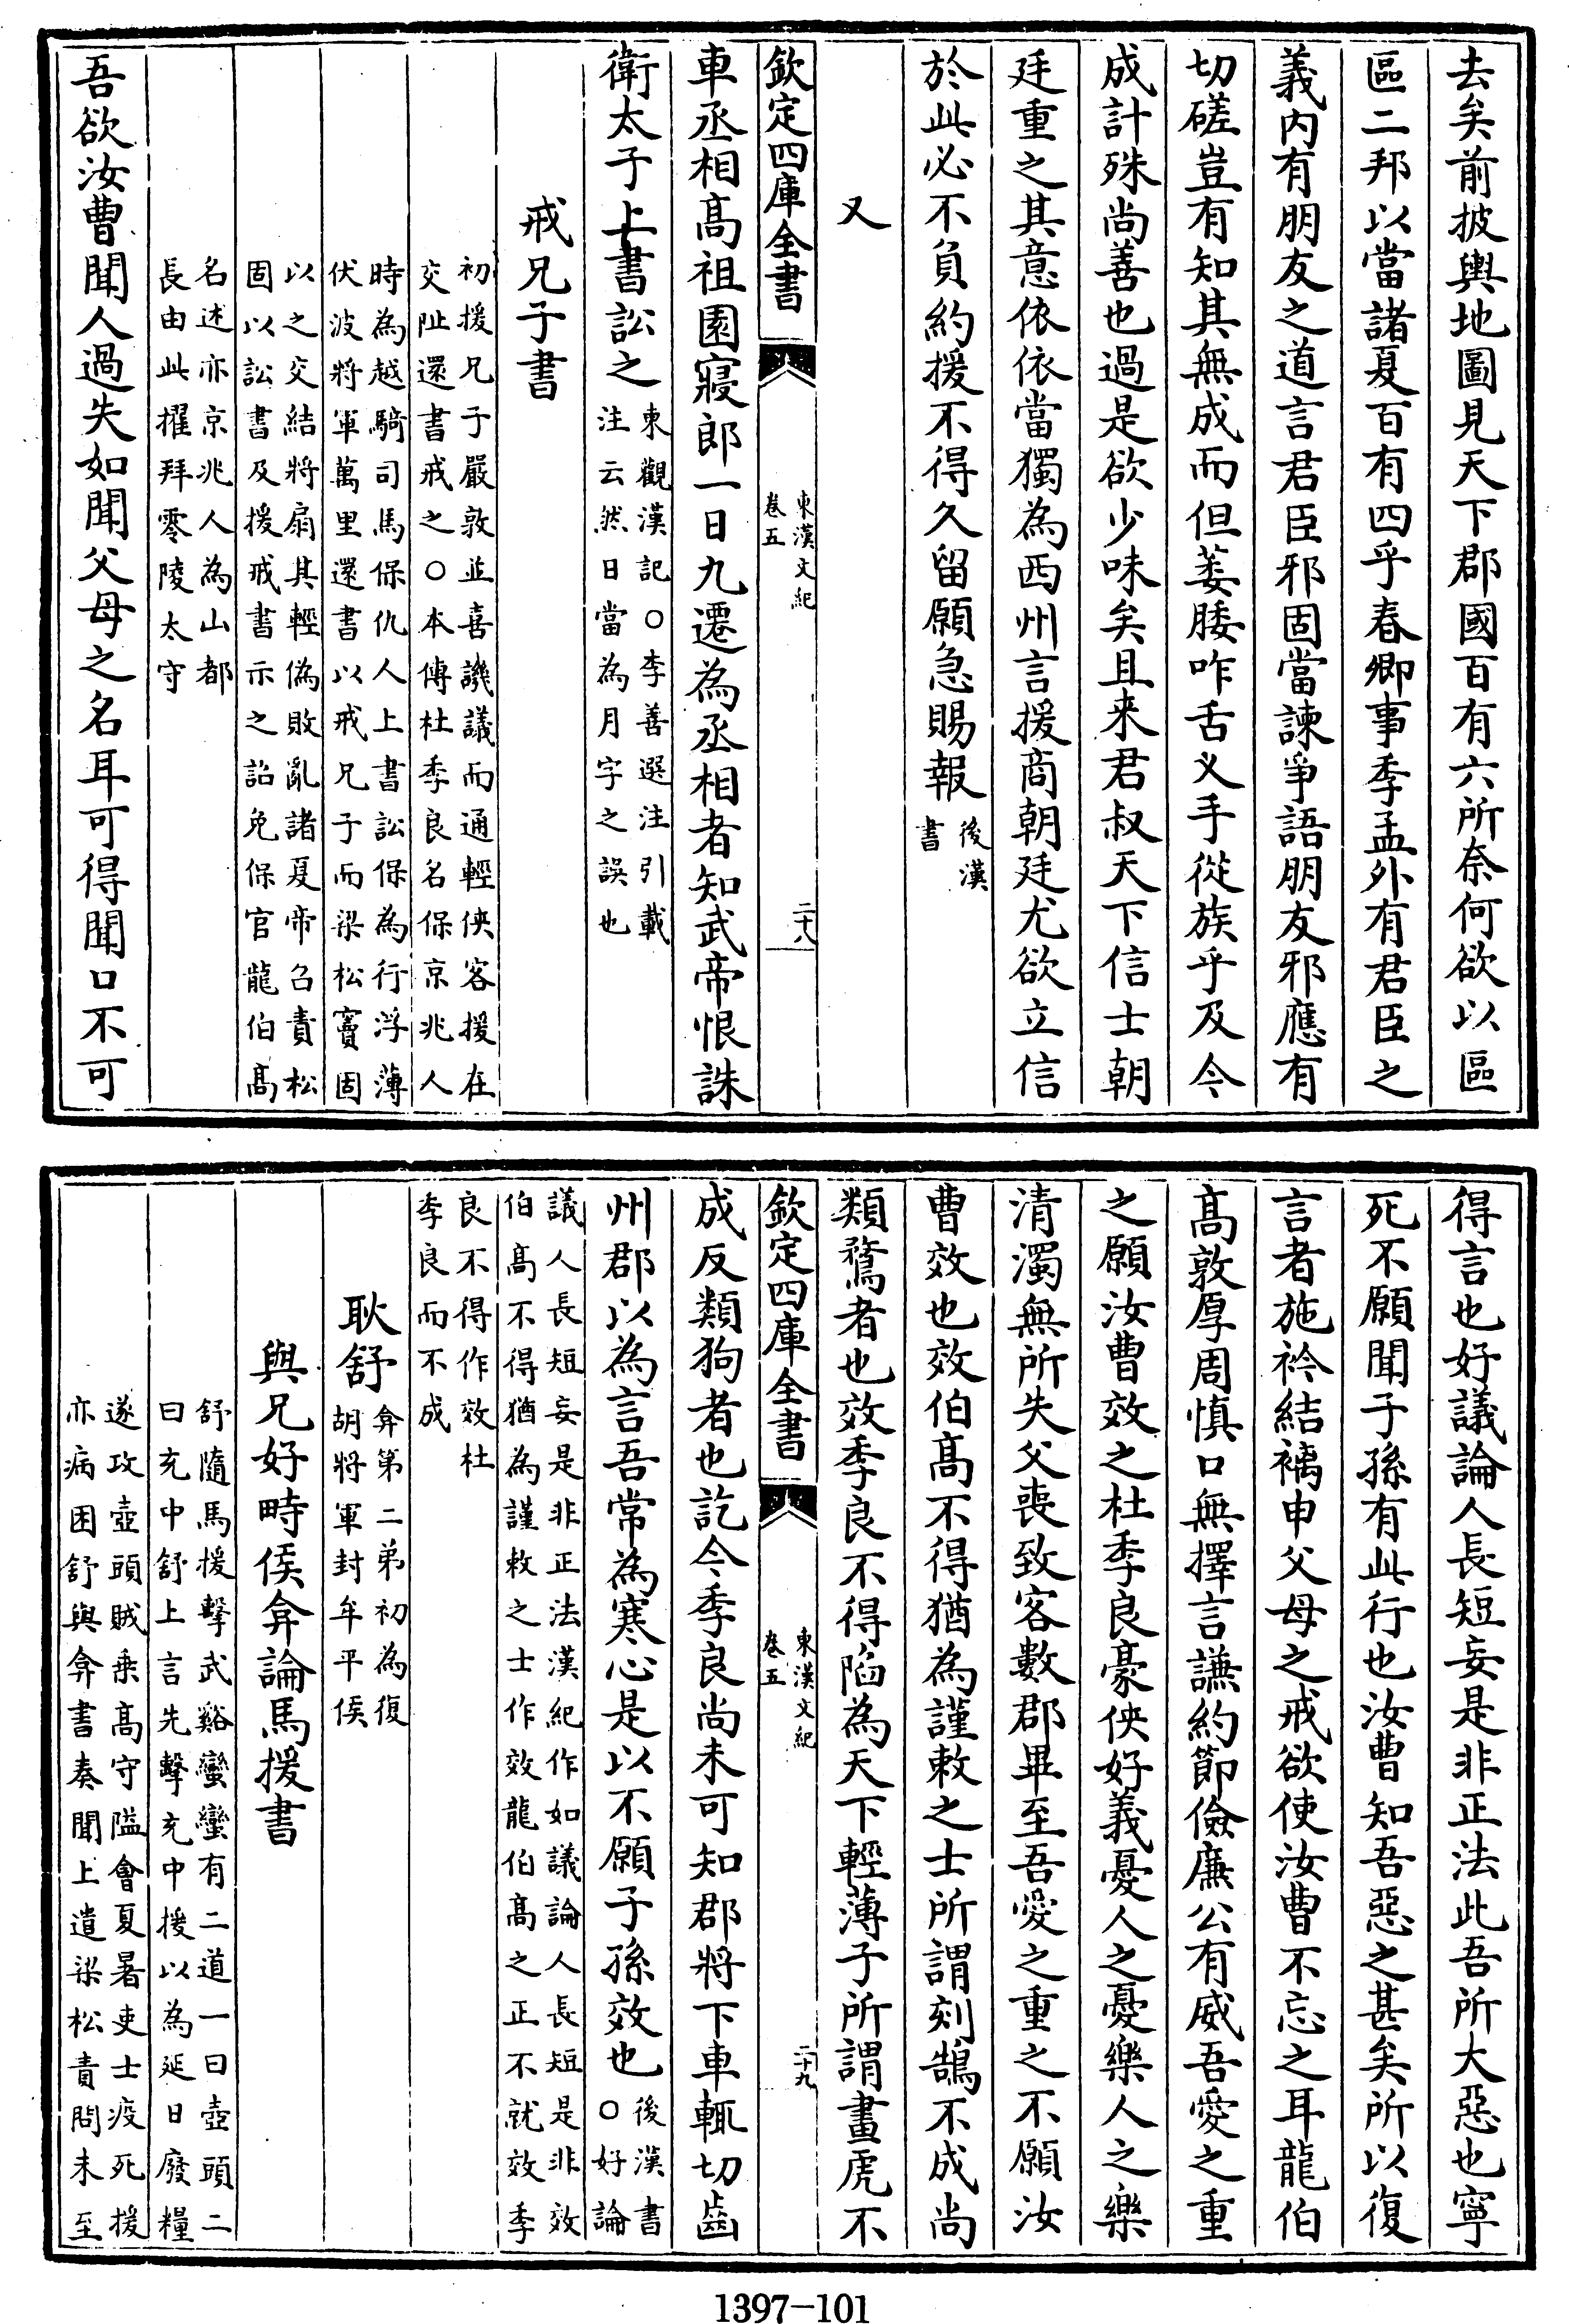 去矣前披輿地圖見天下郡國百有六所奈何欲以區
區二邦以當諸夏百有四乎春卿事季孟外有君臣之
義内有朋友之道言君臣邪固當諫爭語朋友邪應有
切磋豈有知其無成而但萎腇咋舌义手從族乎及今
成計殊尚善也過是欲少味矣且来君叔天下信士朝
廷重之其意依依當獨為西州言援商朝廷尤欲立信
於此必不負約援不得久留願急賜報後漢
書
又
欽定四庫全書
東漢文紀
卷五
二十八
車丞相髙祖園寢郎一日九遷為丞相者知武帝恨誅
衛太子上書訟之東觀漢記○李善選注引載
注云然日當為月字之誤也
戒兄子書
初援兄子嚴敦並喜譏議而通輕俠客援在
交阯還書戒之○本傳杜季良名保京兆人
時為越騎司馬保仇人上書訟保為行浮薄
伏波將軍萬里還書以戒兄子而梁松竇固
以之交結將扇其輕偽敗亂諸夏帝召責松
固以訟書及援戒書示之詔免保官龍伯髙
名述亦京兆人為山都
長由此擢拜零陵太守
吾欲汝曹聞人過失如聞父母之名耳可得聞口不可
得言也好議論人長短妄是非正法此吾所大惡也寧
死不願聞子孫有此行也汝曹知吾惡之甚矣所以復
言者施衿結褵申父母之戒欲使汝曹不忘之耳龍伯
髙敦厚周慎口無擇言謙約節儉廉公有威吾愛之重
之願汝曹效之杜季良豪俠好義憂人之憂樂人之樂
清濁無所失父喪致客數郡畢至吾愛之重之不願汝
曹效也效伯髙不得猶為謹敕之士所謂刻鵠不成尚
類鶩者也效季良不得陷為天下輕薄子所謂畫虎不
欽定四庫全書
東漢文紀
卷五
二十九
成反類狗者也訖今季良尚未可知郡將下車輒切齒
州郡以為言吾常為寒心是以不願子孫效也後漢書
○好論
議人長短妄是非正法漢紀作如議論人長短是非效
伯髙不得猶為謹敕之士作效龍伯髙之正不就效季
良不得作效杜
季良而不成
耿舒弇第二弟初為復
胡將軍封牟平侯
與兄好畤侯弇論馬援書
舒隨馬援擊武谿蠻蠻有二道一曰壺頭二
曰充中舒上言先擊充中援以為延日廢糧
遂攻壺頭賊乗髙守隘會夏暑吏士疫死援
亦病困舒與弇書奏聞上遣梁松責問未至
1397-101